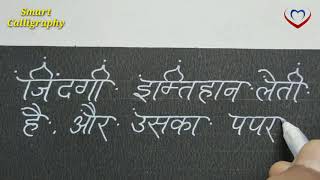 Smart
Calligraphy
जिंदगी इम्तिहान लेती
है . और उसका पपर